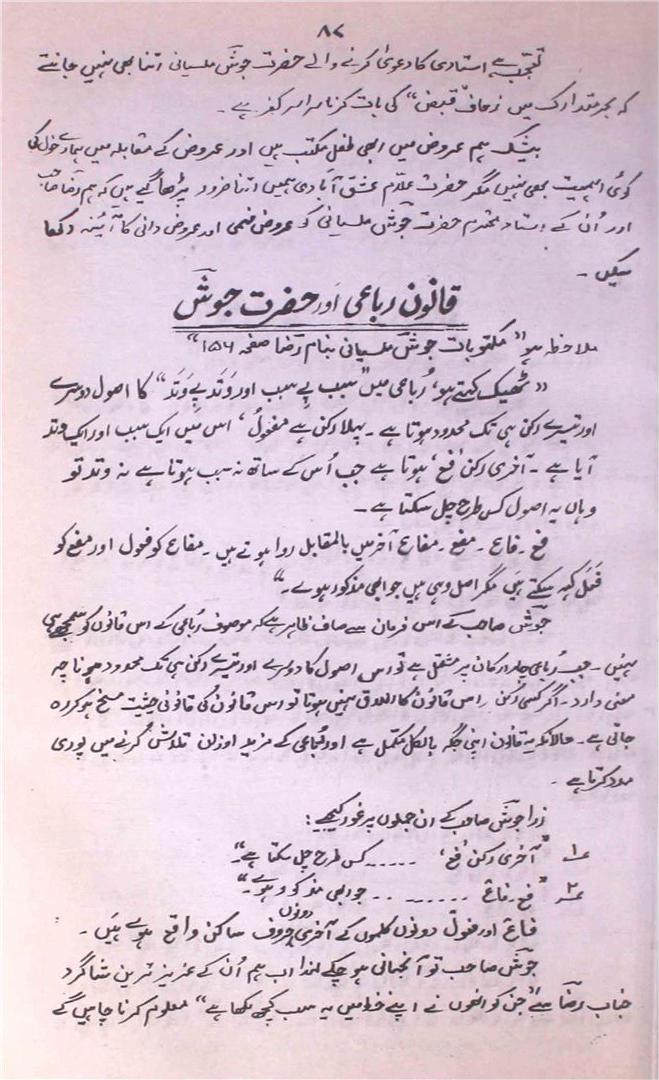 ۸۷
تعجب ہے استادی کا دعویٰ کرنے والے حضرت جوشؔ ملسیانی اتنا بھی نہیں جانتے
کہ بحر متدارک میں زحاف "قبض" کی بات کرنا سراسر کفر ہے۔
بیشک ہم عروض میں ابھی طفل مکتب ہیں اور عروض کے مقابلہ میں ہمارے خول کی
کوئی اہمیت بھی نہیں مگر حضرت علامہ عشق آبادی ہمیں اتنا ضرور پڑھا گئے ہیں کہ ہم رضا صاحب
اور اُن کے استاد محترم حضرت جوشؔ ملسیانی کو عروض فہمی اور عروض دانی کا آئینہ دکھا
سکیں۔
قانون رباعی اور حضرت جوشؔ
ملاحظہ ہو "مکتوبات جوشؔ ملسیانی بنام رضا صفحہ ۱۵۶"
"ٹھیک کہتے ہو، رُباعی میں "سبب پے سبب اور وَتَد پے وَتَد" کا اصول دوسرے
اور تیسرے رکن ہی تک محدود ہوتا ہے۔ پہلا رکن ہے مفعولُ، اس میں ایک سبب اور ایک وتد
آیا ہے۔ آخری رکن 'فع' ہوتا ہے جب اُس کے ساتھ نہ سبب ہوتا ہے نہ وتد تو
وہاں یہ اصول کس طرح چل سکتا ہے۔
فع۔ فاع۔ مفع۔ مفاع آخر میں بالمقابل روا ہوتے ہیں۔ مفاع کو فعول اور مفع کو
فَعَل کہہ سکتے ہیں مگر اصل وہی ہیں جو ابھی مذکور ہوے۔"
جوشؔ صاحب کے اس فرمان سے صاف ظاہر ہے کہ موصوف رُباعی کے اس قانون کو سمجھے ہی
نہیں۔ جب رُباعی چار ارکان پر مشتمل ہے تو اس اصول کا دوسرے اور تیسرے رکن ہی تک محدود ہونا چہ
معنی دارد۔ اگر کسی رُکن پر اس قانون کا اطلاق نہیں ہوتا تو اس قانون کی قانونی حیثیت مسخ ہو کر رہ
جاتی ہے۔ حالانکہ یہ قانون اپنی جگہ بالکل مکمل ہے اور رُباعی کے مزید اوزان تلاش کرنے میں پوری
مدد کرتا ہے۔
ذرا جوشؔ صاحب کے ان جملوں پر غور کیجیے:
۱؎ "آخری رکن 'فع' ...... کس طرح چل سکتا ہے"۔
۲؎ "فع۔ فاع ......... جو ابھی مذکور ہوے۔"
فاع اور فعول دونوں کلموں کے آخری دونوں حروف ساکن واقع ہوے ہیں۔
جوشؔ صاحب تو آنجہانی ہو چکے لہٰذا اب ہم اُن کے عزیز ترین شاگرد
جناب رضا سے "جن کو انھوں نے اپنے خط میں یہ سب کچھ لکھا ہے" معلوم کرنا چاہیں گے